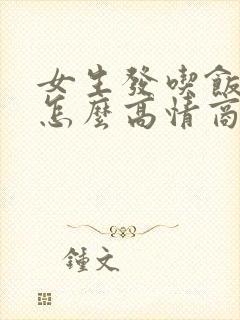 女生發喫飯
怎麼高情商
鍾文